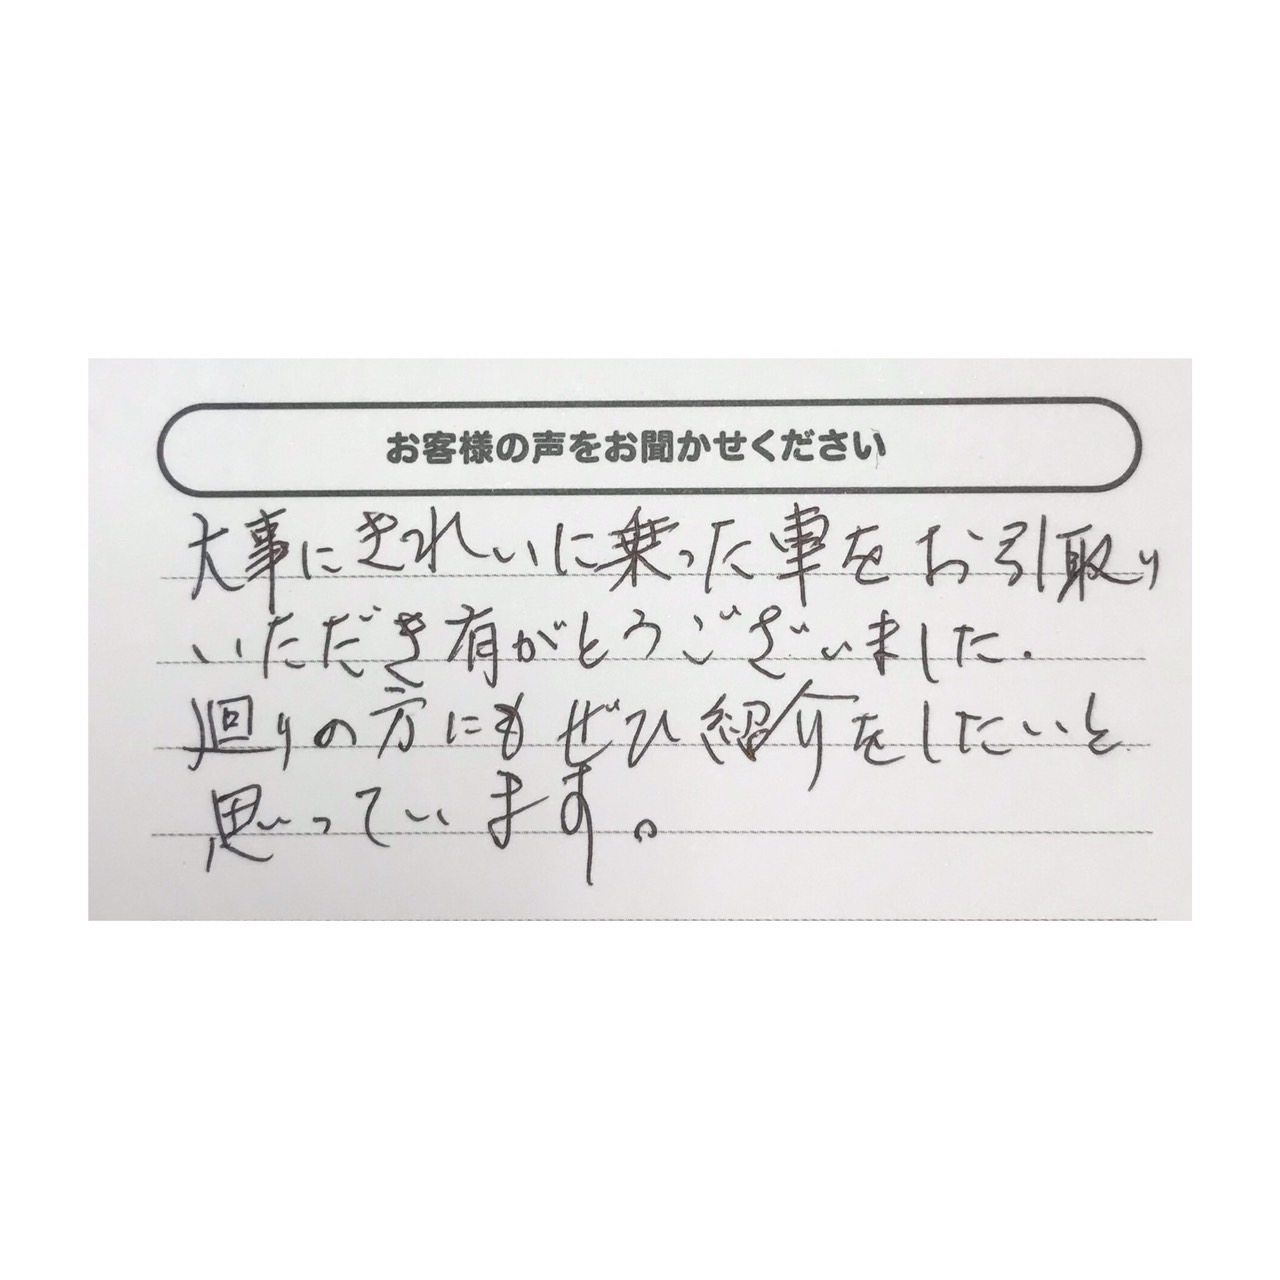 お客様の声をお聞かせください
大事にきれいに乗った車をお引取り
いただき有がとうございました.
廻りの方にもぜひ紹介をしたいと
思っています。